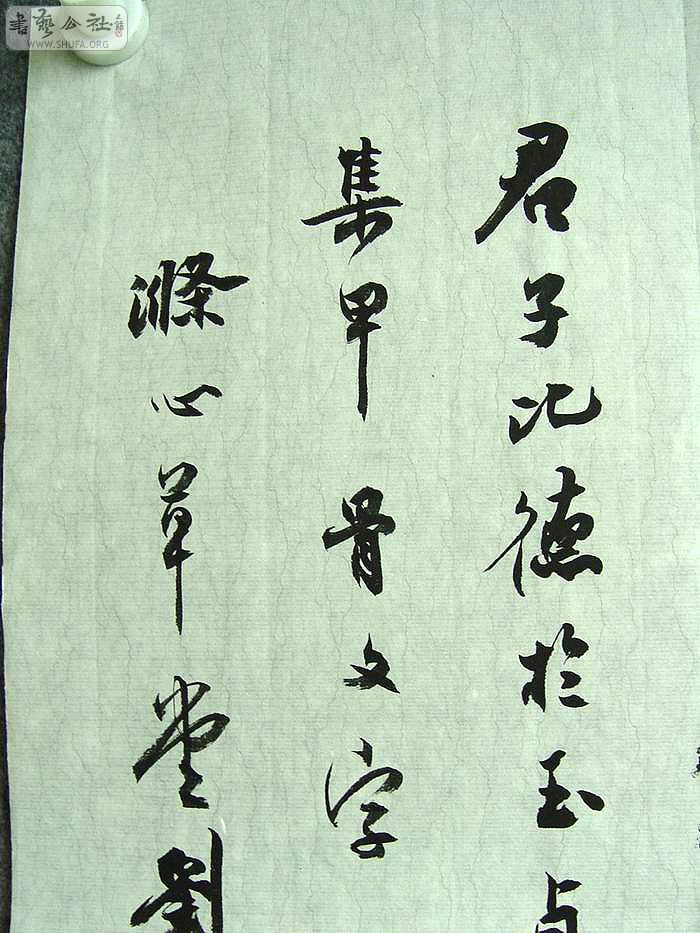 君子比德於玉
集甲骨文字
滌心草堂劉
書藝公社
WWW.SHUFA.ORG